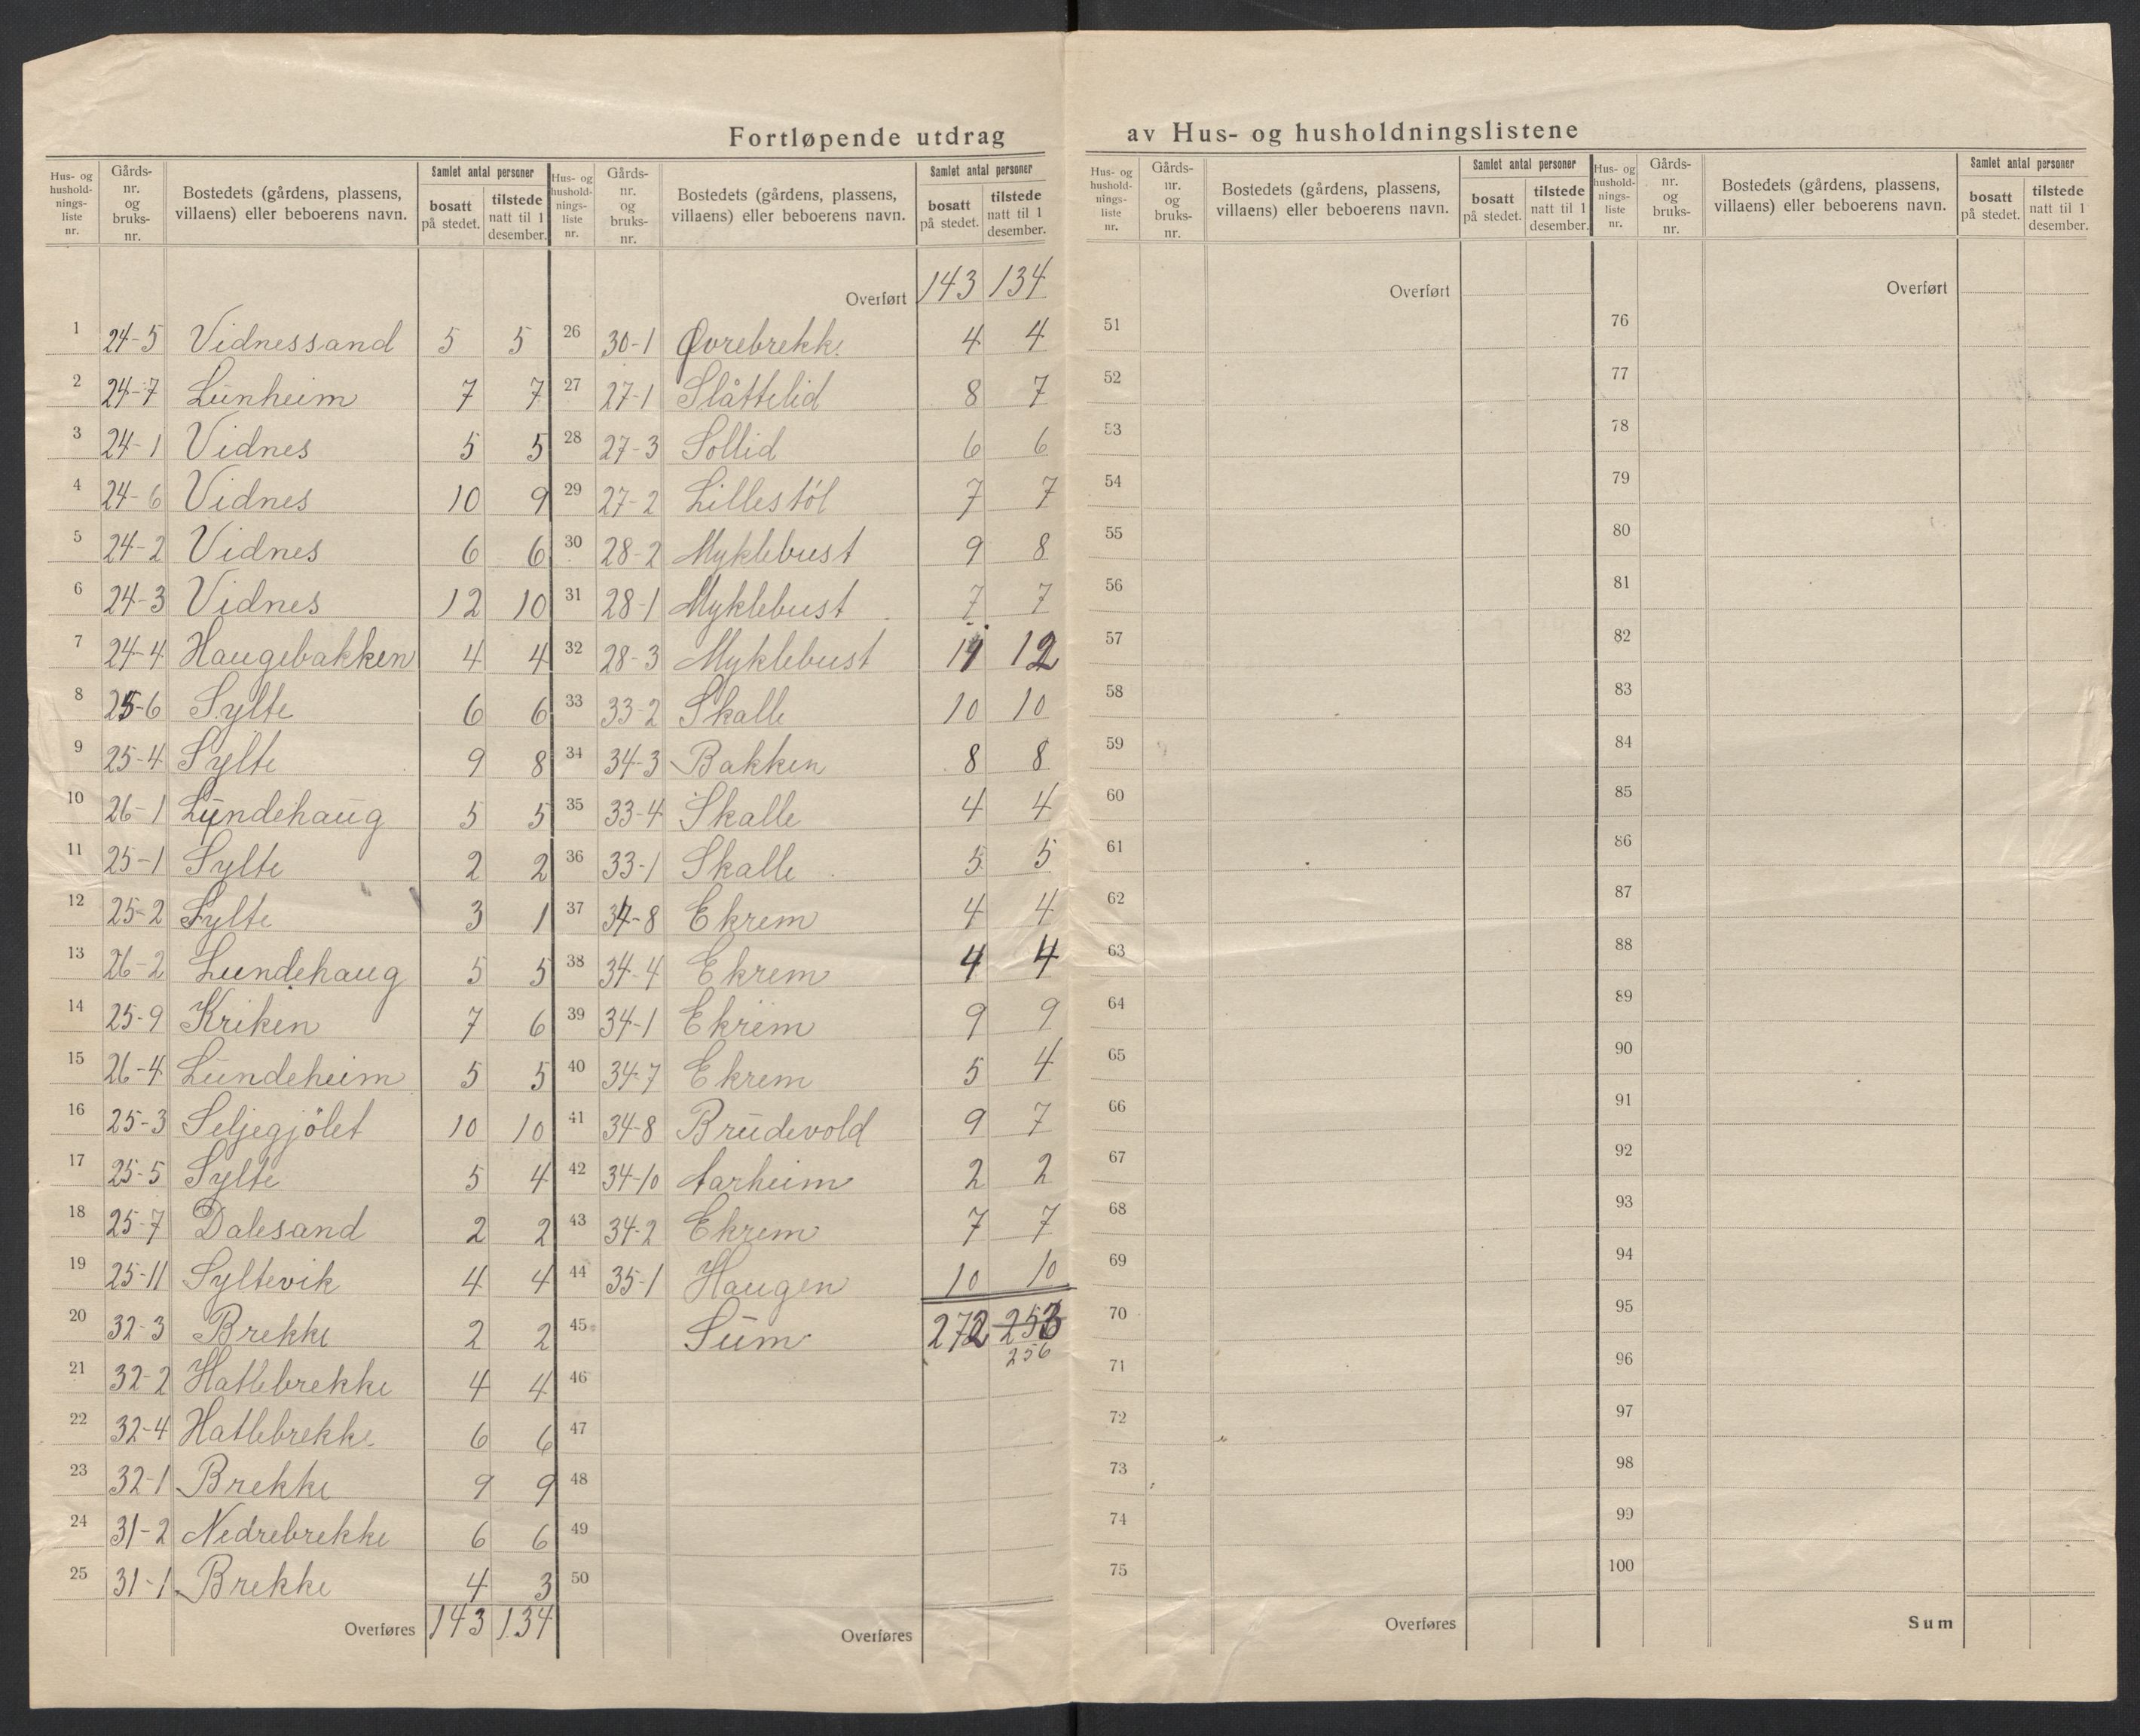 Fortløpende utdrag av Hus- og husholdningslistene
Hus- og husholdningsliste nr. Gårds-nr. og bruks-nr. Bostedets (gårdens, plassens, villaens) eller beboerens navn. Samlet antal personer bosatt på stedet. tilstede natt til 1 desember.
1 24-5 Vidnessand 5 5
2 24-7 Lunheim 7 7
3 24-1 Vidnes 5 5
4 24-6 Vidnes 10 9
5 24-2 Vidnes 6 6
6 24-3 Vidnes 12 10
7 24-4 Haugebakken 4 4
8 25-6 Sylte 6 6
9 25-4 Sylte 9 8
10 26-1 Lundehaug 5 5
11 25-1 Sylte 2 2
12 25-2 Sylte 3 1
13 26-2 Lundehaug 5 5
14 25-9 Kriken 7 6
15 26-4 Lundeheim 5 5
16 25-3 Seljegjölet 10 10
17 25-5 Sylte 5 4
18 25-7 Dalesand 2 2
19 25-11 Syltevik 4 4
20 32-3 Brekke 2 2
21 32-2 Hatlebrekke 4 4
22 32-4 Hatlebrekke 6 6
23 32-1 Brekke 9 9
24 31-2 Nedrebrekke 6 6
25 31-1 Brekke 4 3
Overføres 143 134
Hus- og husholdningsliste nr. Gårds-nr. og bruks-nr. Bostedets (gårdens, plassens, villaens) eller beboerens navn. Samlet antal personer bosatt på stedet. tilstede natt til 1 desember.
Overført 143 134
26 30-1 Øvrebrekk. 4 4
27 27-1 Slåttelid 8 7
28 27-3 Sollid 6 6
29 27-2 Lillestöl 7 7
30 28-2 Myklebust 9 8
31 28-1 Myklebust 7 7
32 28-3 Myklebust 12
33 33-2 Skalle 10 10
34 34-3 Bakken 8 8
35 33-4 Skalle 4 4
36 33-1 Skalle 5 5
37 34-8 Ekrem 4 4
38 34-4 Ekrem 4 4
39 34-1 Ekrem 9 9
40 34-7 Ekrem 5 4
41 34-8 Brudevold 9 7
42 34-10 Aarheim 2 2
43 34-2 Ekrem 7 7
44 35-1 Haugen 10 10
45 Sum 272 253
256
46
47
48
49
50
Overføres
Hus- og husholdningsliste nr. Gårds-nr. og bruks-nr. Bostedets (gårdens, plassens, villaens) eller beboerens navn. Samlet antal personer bosatt på stedet. tilstede natt til 1 desember.
Overført
51
52
53
54
55
56
57
58
59
60
61
62
63
64
65
66
67
68
69
70
71
72
73
74
75
Overføres
Hus- og husholdningsliste nr. Gårds-nr. og bruks-nr. Bostedets (gårdens, plassens, villaens) eller beboerens navn. Samlet antal personer bosatt på stedet. tilstede natt til 1 desember.
Overført
76
77
78
79
80
81
82
83
84
85
86
87
88
89
90
91
92
93
94
95
96
97
98
99
100
Sum